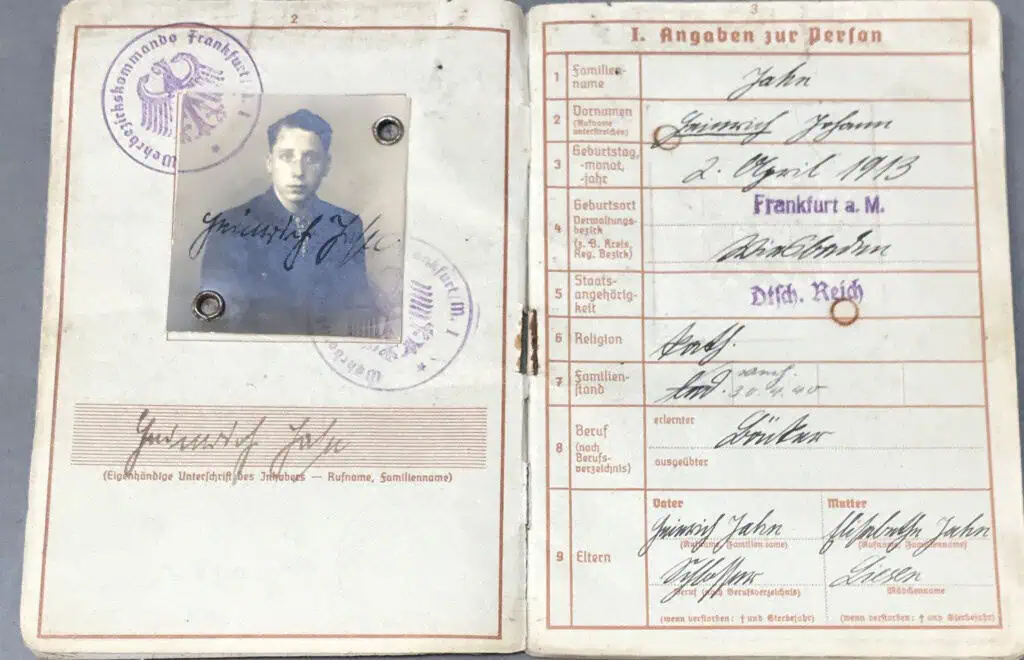 2
Wehrbezirkskommando Frankfurt/M. I
Heinrich Jahn
Heinrich Jahn
(Eigenhändige Unterschrift des Inhabers — Rufname, Familienname)
3
I. Angaben zur Person
1 Familien-
name
Jahn
2 Vornamen
(Rufname
unterstreichen)
Heinrich Johann
3 Geburtstag,
-monat,
-jahr
2. April 1913
4 Geburtsort
Verwaltungs-
bezirk
(z. B. Kreis,
Reg. Bezirk)
Frankfurt a. M.
Wiesbaden
5 Staats-
angehörig-
keit
Dtsch. Reich
6 Religion
kath.
7 Familien-
stand
led. verh.
30.4.40
8 Beruf
(nach
Berufs-
verzeichnis)
erlernter
ausgeübter
9 Eltern
Vater
Heinrich Jahn
(Rufname, Familienname)
Schlosser
Beruf (nach Berufsverzeichnis)
(wenn verstorben: † und Sterbejahr)
Mutter
Elisabetha Jahn
(Rufname, Familienname)
Liesen
Mädchenname
(wenn verstorben: † und Sterbejahr)